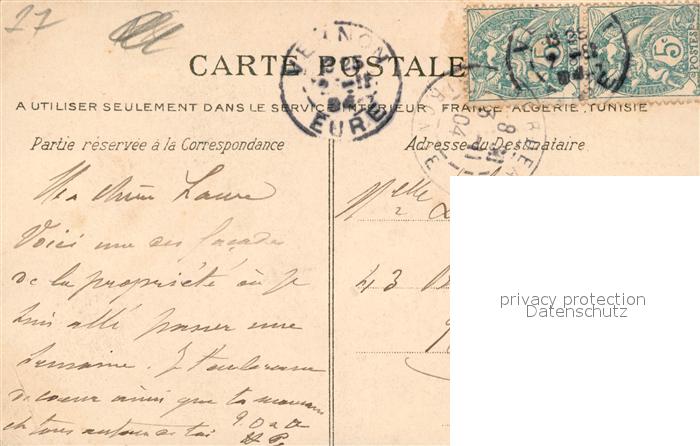 27
CARTE POSTALE
VERNON
EURE
A UTILISER SEULEMENT DANS LE SERVICE INTÉRIEUR FRANCE-ALGÉRIE-TUNISIE
Partie réservée à la Correspondance
Adresse du Destinataire
Ma chère Laure
Voici une des façades
de la propriété où je
suis allé passer une
semaine. Je t'embrasse
de coeur ainsi que ta maman
et tous autour de toi
Mlle
43
privacy protection
Datenschutz